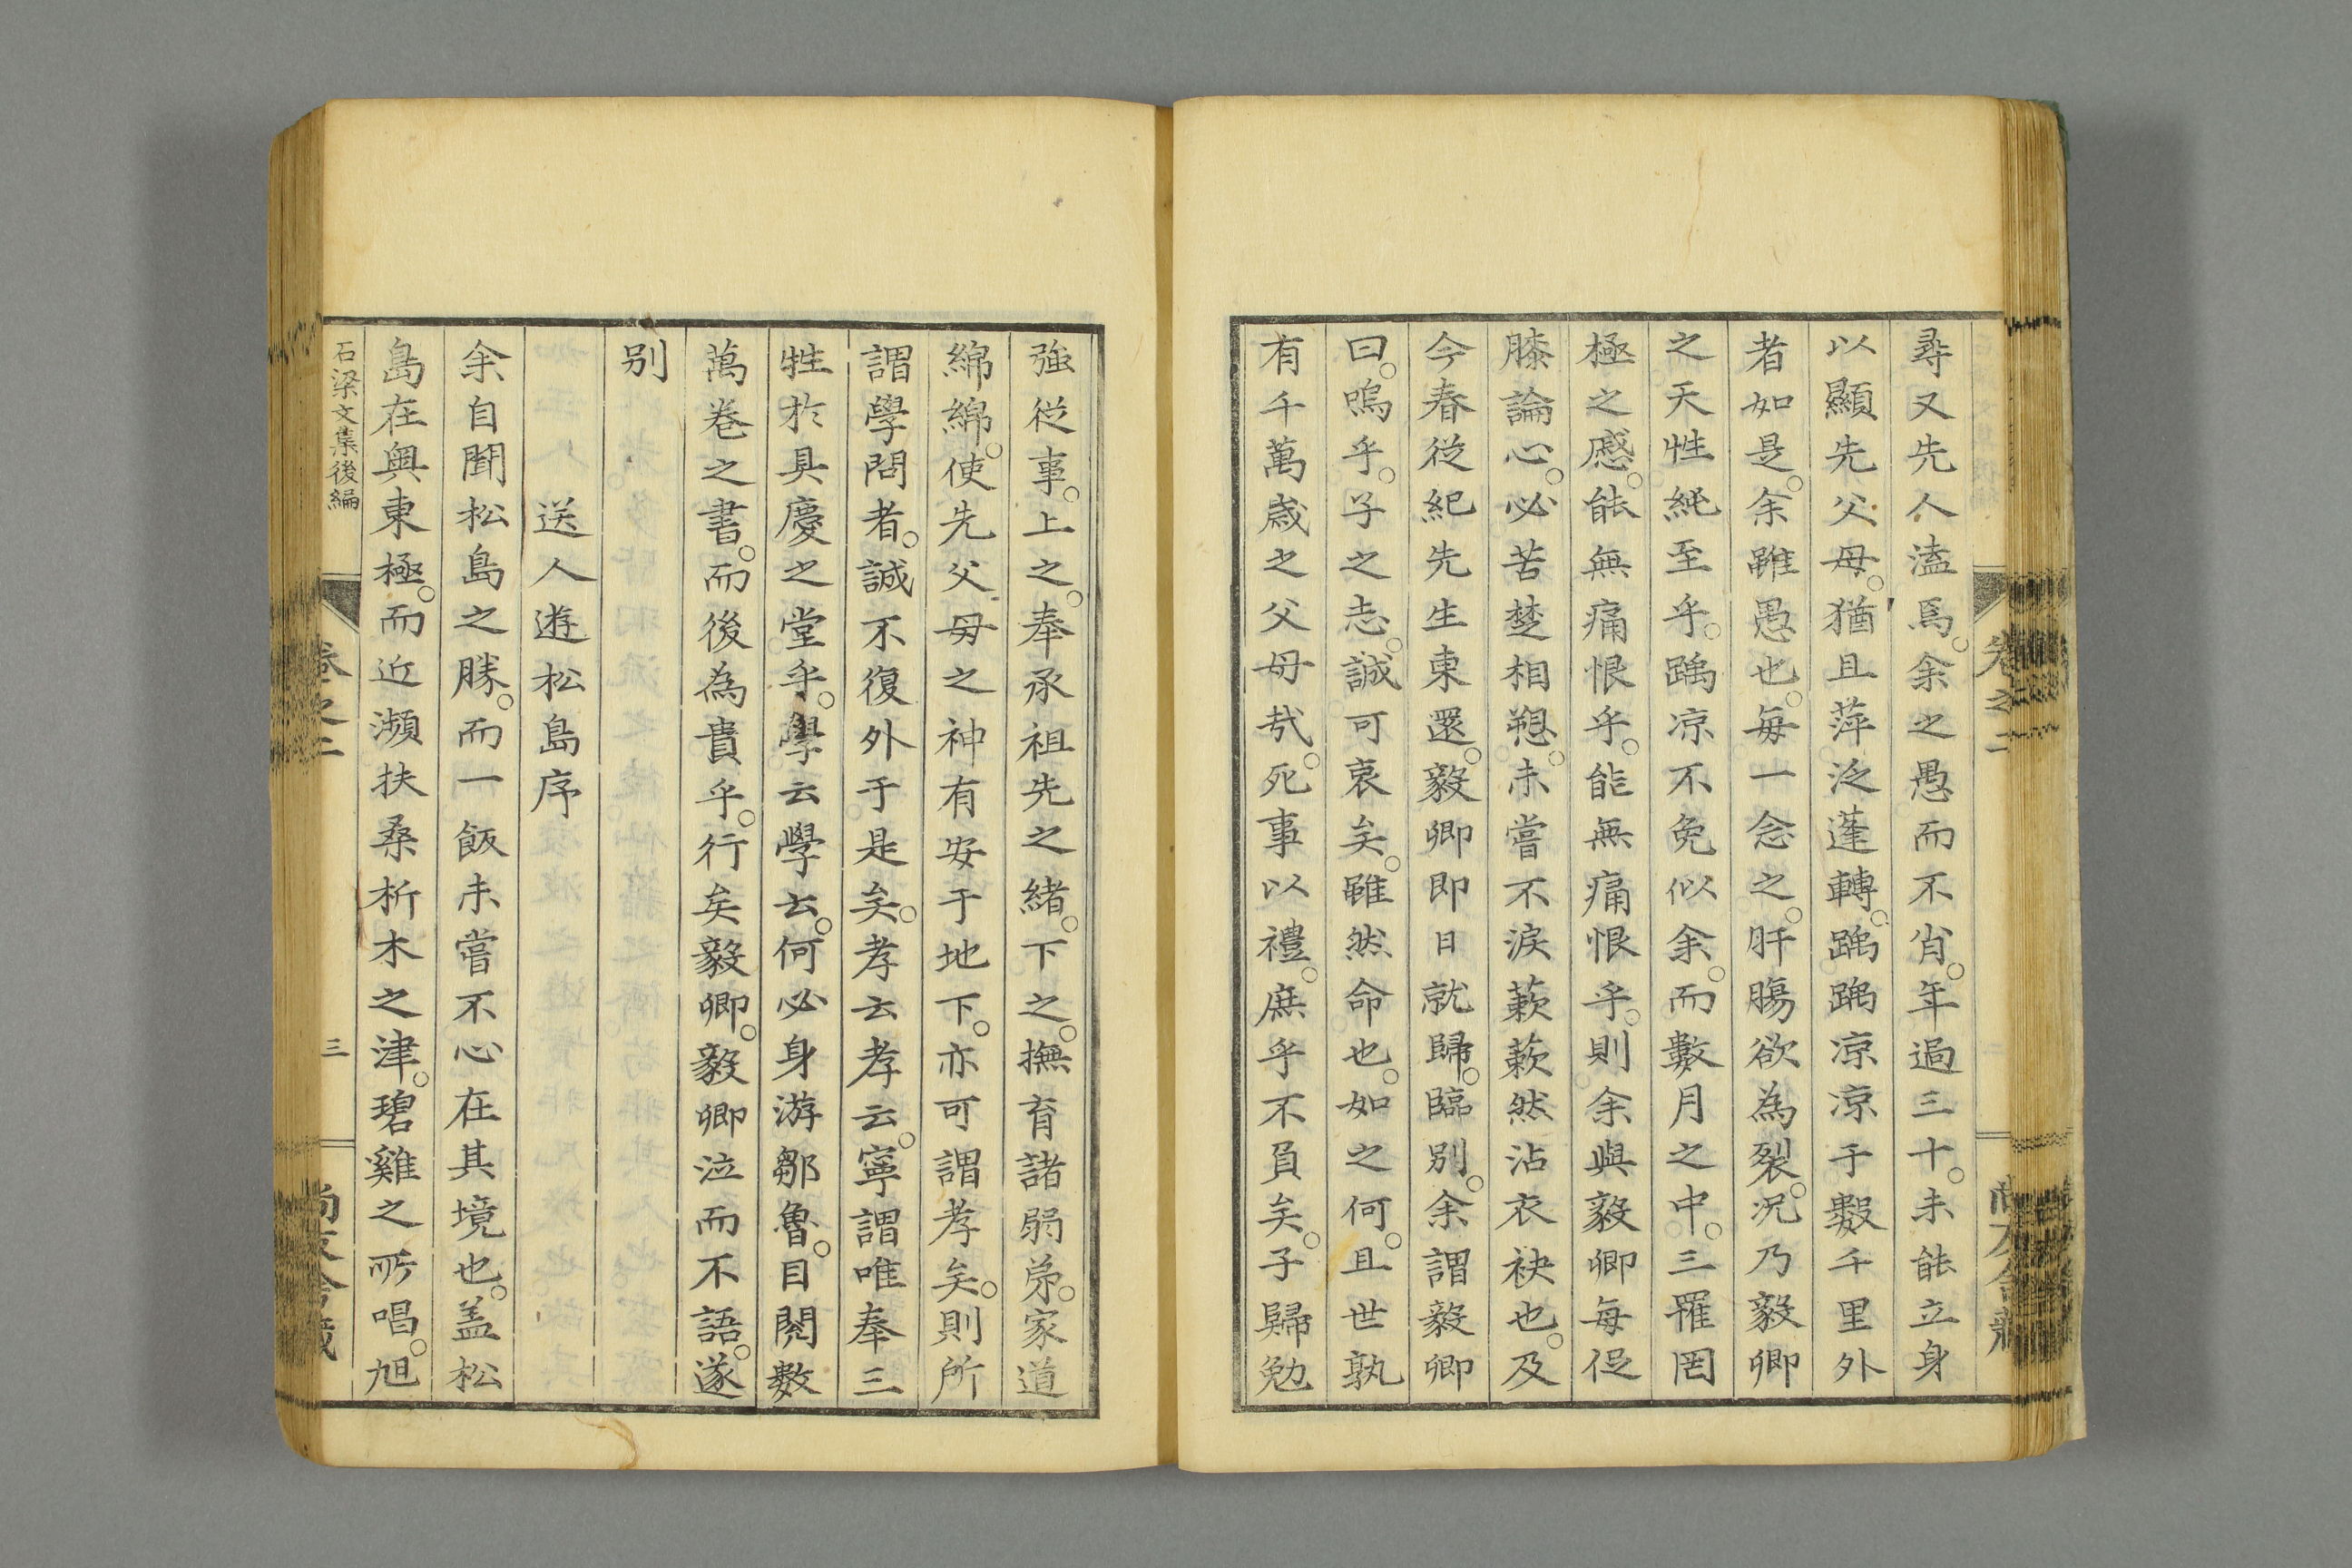 尋又先人溘焉。余之愚而不肖。年過三十。未能立身
以顯先父母。猶且萍泛蓬轉。踽踽凉凉于數千里外
者如是。余雖愚也。每一念之。肝膓欲為裂。况乃毅卿
之天性純至乎。踽凉不免似余。而數月之中。三罹罔
極之慼。能無痛恨乎。能無痛恨乎。則余與毅卿每促
膝論心。必苦楚相愬。未嘗不淚蔌蔌然沾衣袂也。及
今春從紀先生東還。毅卿即日就歸。臨別。余謂毅卿
曰。嗚乎。子之志。誠可哀矣。雖然命也。如之何。且世孰
有千萬歲之父母哉。死事以禮。庶乎不負矣。子歸勉
卷之二
強從事。上之。奉承祖先之緒。下之。撫育諸弱弟。家道
綿綿。使先父母之神有安于地下。亦可謂孝矣。則所
謂學問者。誠不復外于是矣。孝云孝云。寧謂唯奉三
牲於具慶之堂乎。學云學云。何必身游鄒魯。目閱數
萬卷之書。而後為貴乎。行矣毅卿。毅卿泣而不語。遂
別
送人遊松島序
余自聞松島之勝。而一飯未嘗不心在其境也。盖松
島在奥東極。而近瀕扶桑析木之津。碧雞之所唱。旭
石梁文集後編
卷之二
三
尚友舍藏